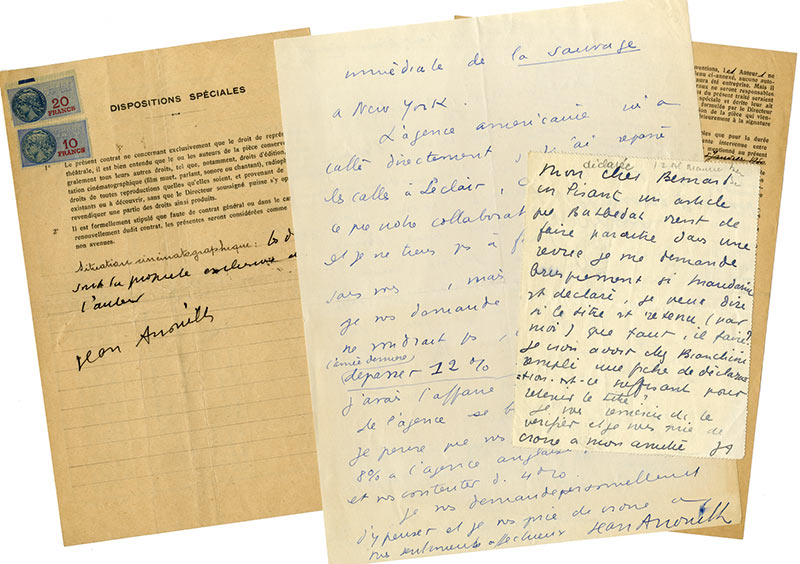 20
FRANCS
10
FRANCS
DISPOSITIONS SPÉCIALES
1° Le présent contrat ne concernant exclusivement que le droit de repré
théâtrale, il est bien entendu que le ou les auteurs de la pièce conservent
galement tous leurs autres droits, tel que, notamment, droits d'édition,
tation cinématographique (film muet, parlant, sonore ou chantant), radioph
droits de toutes reproductions quelles qu'elles soient, et provenant de
existants ou à découvrir, sans que le Directeur soussigné puisse s'y op
revendiquer une partie des droits ainsi produits.
2° Il est formellement stipulé que faute de contrat général ou dans le cas
renouvellement dudit contrat, les présentes seront considérées comme
non avenues.
Situation cinématographique : les d
sont la propriété exclusive
l'auteur
Jean Anouilh
immédiate de la sauvage
a New York.
L'agence americaine m'a
cablé directement j'ai repassé
les cables à Leclair,
ce que notre collaborat
et je ne tiens pas à
sans vous, mais
je vous demande
ne voudrait pas,
(année dernière)
dépasser 12 %
j'avais l'affaire
de l'agence se
je pense que vous
8% a l'agence anglaise
et vous contenter de 4%.
Je vous demande personnellement
d'y penser et je vous prie de croire a
mes sentiments affectueux Jean Anouilh
déclarée
Mon cher Bernard
en lisant un article
que Barbedat vient de
faire paraitre dans une
revue je me demande
brusquement si Mandarine
est déclaré, je veux dire
si le titre est retenu (par
moi) que faut, il faire?
Je crois avoir chez Bianchini
rempli une fiche de déclara
tion. est-ce suffisant pour
retenir le titre?
Je vous remercie de le
vérifier et je vous prie de
croire a mon amitié JA
ventions, les Auteurs ne
enu ci-annexé, aucune auto-
aura été entreprise. Mais il
eux ne seront responsables
du présent traité seraient
spéciale et écrite leur ait
formulée par le Directeur
de la pièce qui vien-
térieurement à la signature
bles que pour la durée
entre intervenant
mentionné au présent